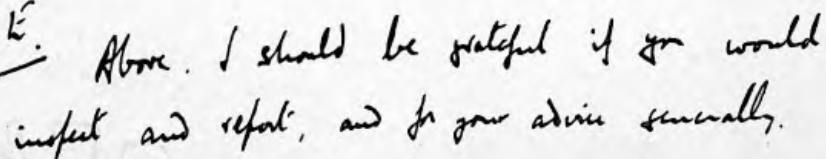 E.
Above. I should be grateful if you would
inspect and report, and for your advice generally.